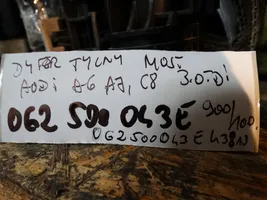 DYFER TYLNY MOST
AODi A6 A7, C8 3.0.TDi
0G2 500 043E 900/100.
0G2500043E 438N